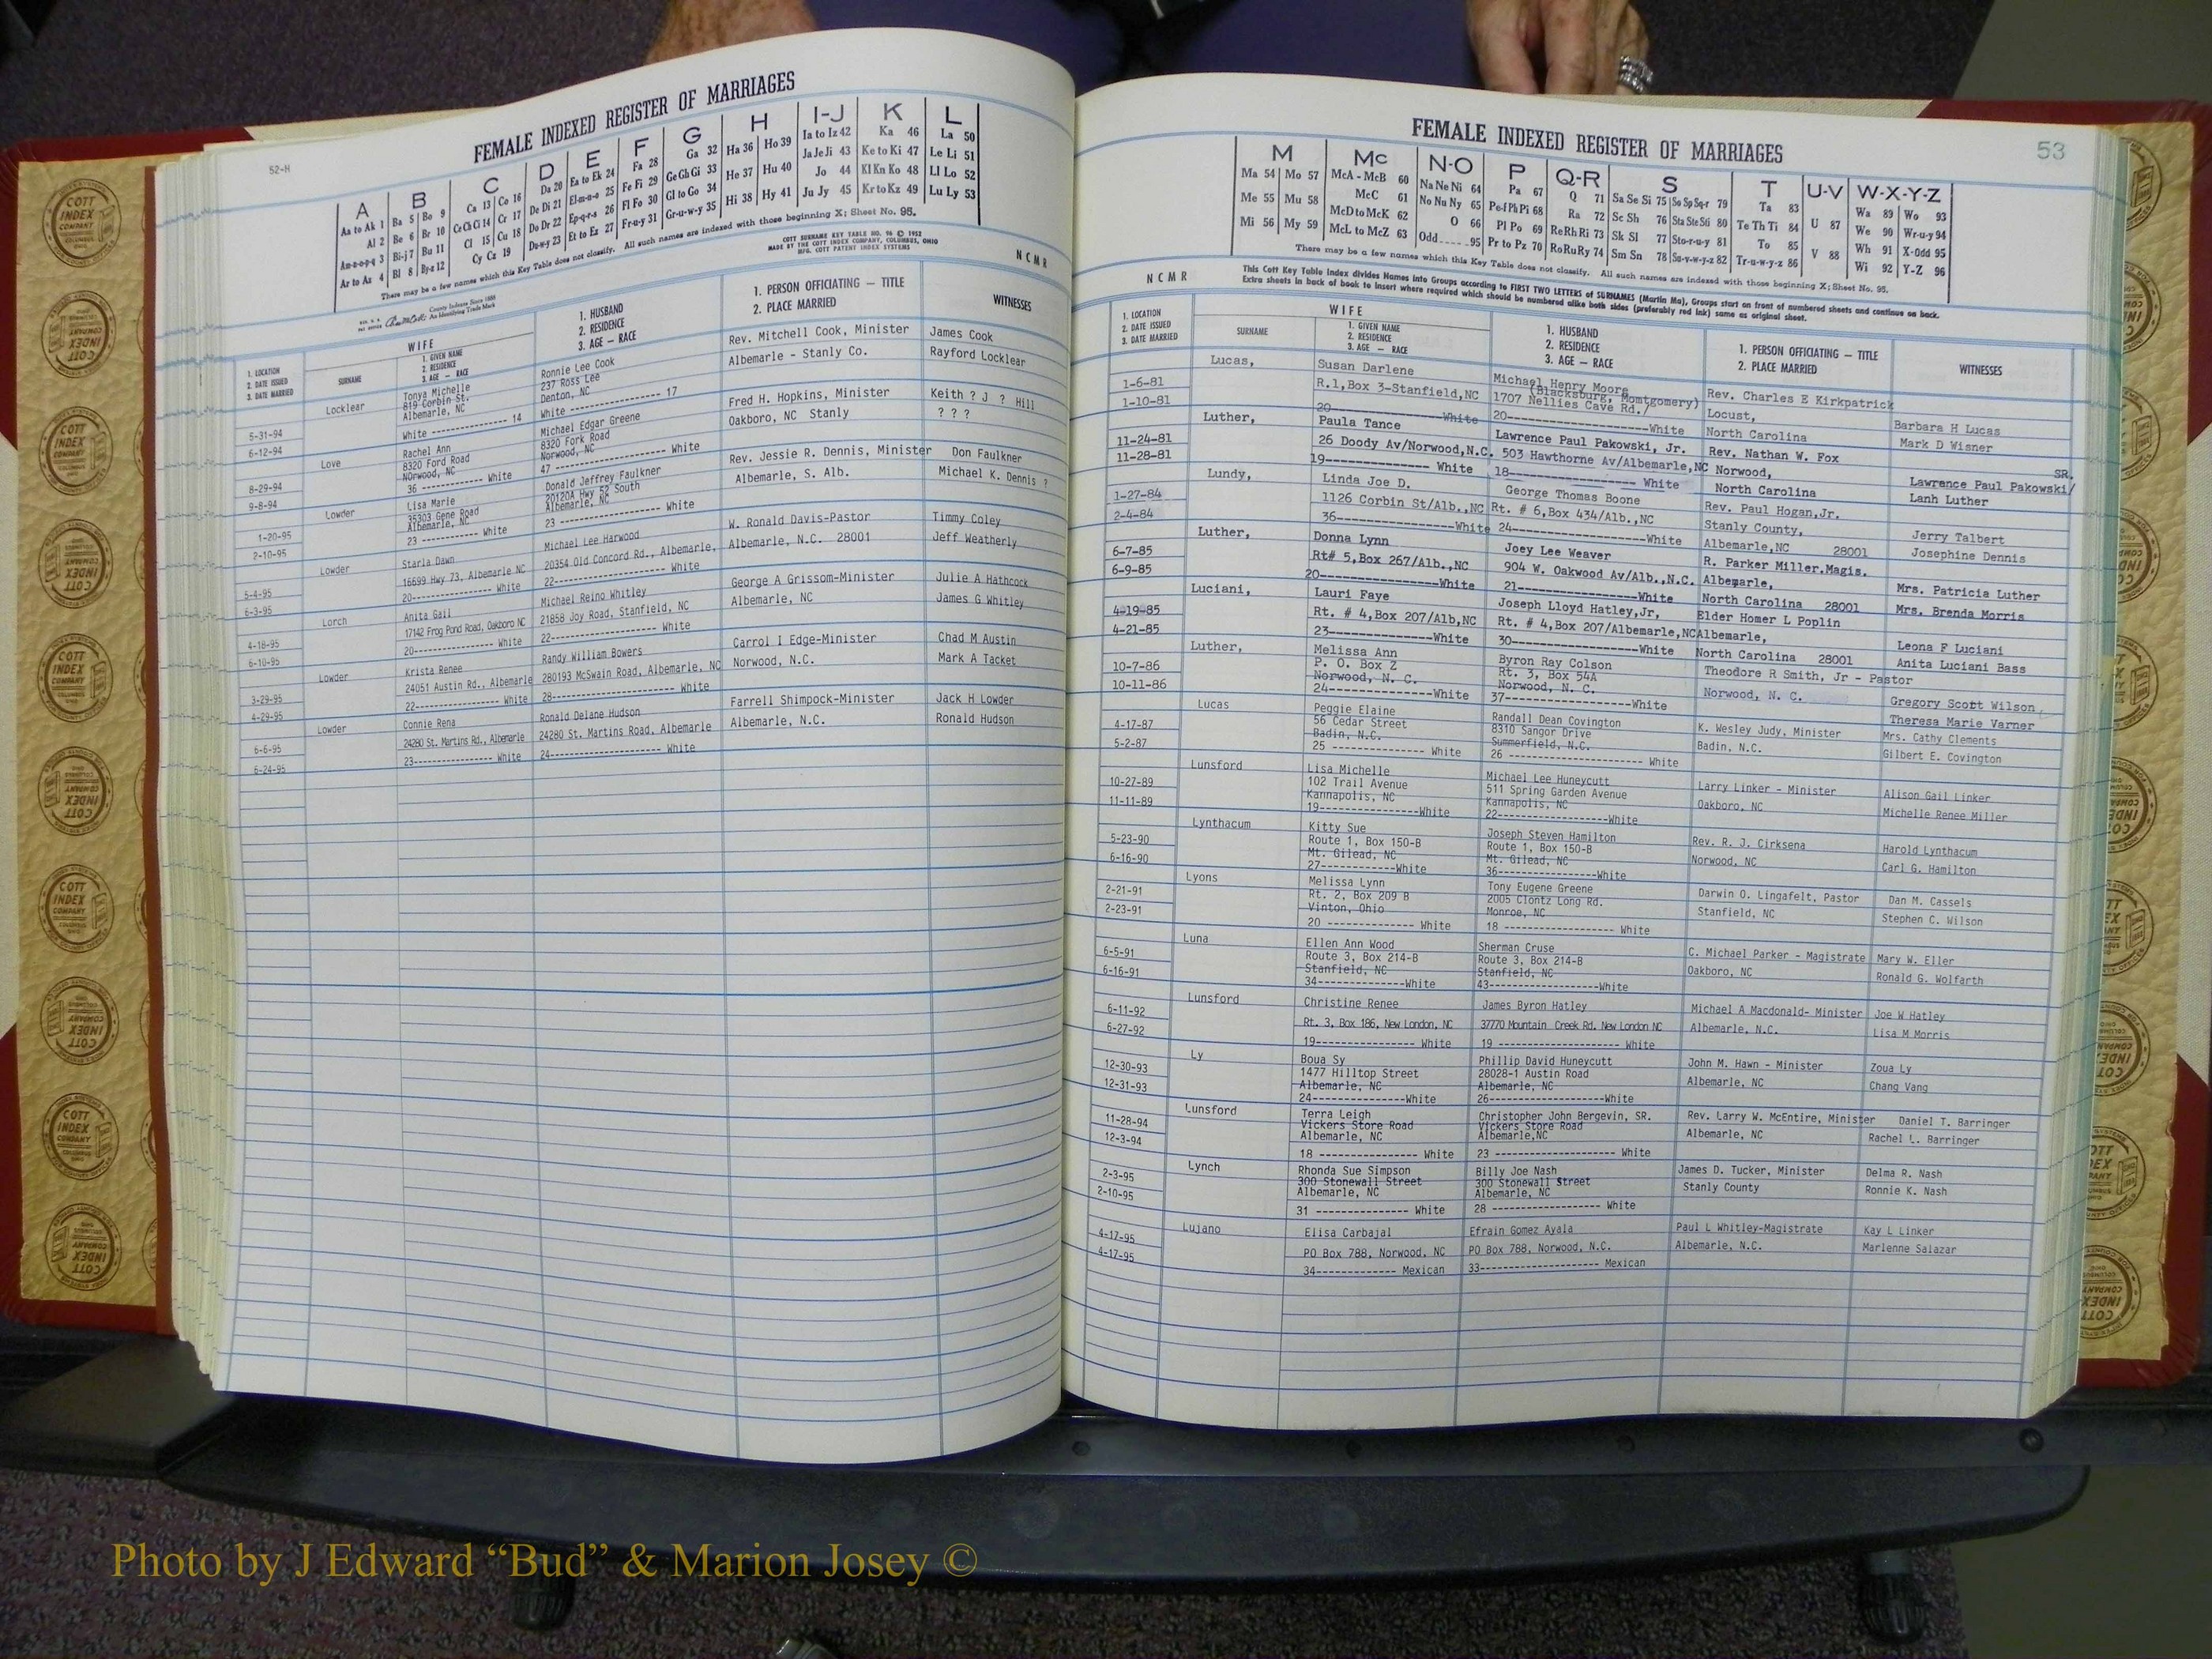 52-H
FEMALE INDEXED REGISTER OF MARRIAGES
A B C D E F G H I-J K L
Aa to Ak 1 Ba 5 Bo 9 Ca 13 Co 16 Da 20 Ea to Ek 24 Fa 28 Ga 32 Ha 36 Ho 39 Ia to Iz 42 Ka 46 La 50
Al 2 Be 6 Br 10 Ce Ch Ci 14 Cr 17 De Di 21 El-m-n-o 25 Fe Fi 29 Ge Gh Gi 33 He 37 Hu 40 Ja Je Ji 43 Ke to Ki 47 Le Li 51
Am-n-o-p-q 3 Bi-j 7 Bu 11 Cl 15 Cu 18 Do Dr 22 Ep-q-r-s 26 Fl Fo 30 Gl to Go 34 Hi 38 Hy 41 Jo 44 Kl Kn Ko 48 Ll Lo 52
Ar to Az 4 Bl 8 By-z 12 Cy Cz 19 Du-w-y 23 Et to Ez 27 Fr-u-y 31 Gr-u-w-y 35 Ju Jy 45 Kr to Kz 49 Lu Ly 53
There may be a few names which this Key Table does not classify. All such names are indexed with those beginning X; Sheet No. 95.
COTT SURNAME KEY TABLE NO. 96 © 1952
MADE BY THE COTT INDEX COMPANY, COLUMBUS, OHIO
MFG. COTT PATENT INDEX SYSTEMS
County Indexes Since 1888
An Identifying Trade Mark
N C M R
1. LOCATION
2. DATE ISSUED
3. DATE MARRIED
WIFE
SURNAME
1. GIVEN NAME
2. RESIDENCE
3. AGE — RACE
1. HUSBAND
2. RESIDENCE
3. AGE - RACE
1. PERSON OFFICIATING - TITLE
2. PLACE MARRIED
WITNESSES
Locklear Tonya Michelle Ronnie Lee Cook Rev. Mitchell Cook, Minister James Cook
819 Corbin St. 237 Ross Lee Albemarle - Stanly Co. Rayford Locklear
Albemarle, NC Denton, NC
5-31-94 White -------------- 14 White ------------------ 17
6-12-94
Love Rachel Ann Michael Edgar Greene Fred H. Hopkins, Minister Keith ? J ? Hill
8320 Ford Road 8320 Fork Road Oakboro, NC Stanly ? ? ?
NOrwood, NC Norwood, NC
8-29-94 36 ------------ White 47 ------------------- White
9-8-94
Lowder Lisa Marie Donald Jeffrey Faulkner Rev. Jessie R. Dennis, Minister Don Faulkner
35303 Gene Road 20120A Hwy 52 South Albemarle, S. Alb. Michael K. Dennis ?
Albemarle, NC Albemarle, NC
1-20-95 23 ------------ White 23 ------------------ White
2-10-95
Lowder Starla Dawn Michael Lee Harwood W. Ronald Davis-Pastor Timmy Coley
16699 Hwy 73, Albemarle NC 20354 Old Concord Rd., Albemarle, Albemarle, N.C. 28001 Jeff Weatherly
5-4-95 20--------------- White 22--------------------- White
6-3-95
Lorch Anita Gail Michael Reino Whitley George A Grissom-Minister Julie A Hathcock
17142 Frog Pond Road, Oakboro NC 21858 Joy Road, Stanfield, NC Albemarle, NC James G Whitley
4-18-95 20--------------- White 22------------------- White
6-10-95
Lowder Krista Renee Randy William Bowers Carrol I Edge-Minister Chad M Austin
24051 Austin Rd., Albemarle 280193 McSwain Road, Albemarle, NC Norwood, N.C. Mark A Tacket
3-29-95 22---------------- White 28---------------------- White
4-29-95
Lowder Connie Rena Ronald Delane Hudson Farrell Shimpock-Minister Jack H Lowder
24280 St. Martins Rd., Albemarle 24280 St. Martins Road, Albemarle Albemarle, N.C. Ronald Hudson
6-6-95 23--------------- White 24-------------------- White
6-24-95
FEMALE INDEXED REGISTER OF MARRIAGES
53
M Mc N-O P Q-R S T U-V W-X-Y-Z
Ma 54 Mo 57 McA - McB 60 Na Ne Ni 64 Pa 67 Q 71 Sa Se Si 75 So Sp Sq-r 79 Ta 83 U 87 Wa 89 Wo 93
Me 55 Mu 58 McC 61 No Nu Ny 65 Pe-f Ph Pi 68 Ra 72 Sc Sh 76 Sta Ste Sti 80 Te Th Ti 84 V 88 We 90 Wr-u-y 94
Mi 56 My 59 McD to McK 62 O 66 Pl Po 69 Re Rh Ri 73 Sk Sl 77 Sto-r-u-y 81 To 85 Wh 91 X-Odd 95
McL to McZ 63 Odd.....95 Pr to Pz 70 Ro Ru Ry 74 Sm Sn 78 Su-v-w-y-z 82 Tr-u-w-y-z 86 Wi 92 Y-Z 96
There may be a few names which this Key Table does not classify. All such names are indexed with those beginning X; Sheet No. 95.
N C M R
This Cott Key Table Index divides Names into Groups according to FIRST TWO LETTERS of SURNAMES (Martin Ma), Groups start on front of numbered sheets and continue on back.
Extra sheets in back of book to insert where required which should be numbered alike both sides (preferably red ink) same as original sheet.
1. LOCATION
2. DATE ISSUED
3. DATE MARRIED
WIFE
SURNAME
1. GIVEN NAME
2. RESIDENCE
3. AGE — RACE
1. HUSBAND
2. RESIDENCE
3. AGE - RACE
1. PERSON OFFICIATING - TITLE
2. PLACE MARRIED
WITNESSES
Lucas, Susan Darlene Michael Henry Moore Rev. Charles E Kirkpatrick
1-6-81 R.1,Box 3-Stanfield,NC (Blacksburg, Montgomery) Locust, Barbara H Lucas
1-10-81 1707 Nellies Cave Rd./ North Carolina Mark D Wisner
20---------------White 20----------------White
Luther, Paula Tance Lawrence Paul Pakowski, Jr. Rev. Nathan W. Fox SR.
11-24-81 26 Doody Av/Norwood,N.C. 503 Hawthorne Av/Albemarle,NC Norwood, Lawrence Paul Pakowski/
11-28-81 19-------------- White 18----------------- White North Carolina Lanh Luther
Lundy, Linda Joe D. George Thomas Boone Rev. Paul Hogan,Jr.
1-27-84 1126 Corbin St/Alb.,NC Rt. # 6,Box 434/Alb.,NC Stanly County, Jerry Talbert
2-4-84 36---------------White 24------------------White Albemarle,NC 28001 Josephine Dennis
Luther, Donna Lynn Joey Lee Weaver R. Parker Miller.Magis.
6-7-85 Rt# 5,Box 267/Alb.,NC 904 W. Oakwood Av/Alb.,N.C. Albemarle, Mrs. Patricia Luther
6-9-85 20----------------White 21----------------White North Carolina 28001 Mrs. Brenda Morris
Luciani, Lauri Faye Joseph Lloyd Hatley,Jr, Elder Homer L Poplin
4-19-85 Rt. # 4,Box 207/Alb,NC Rt. # 4,Box 207/Albemarle,NC Albemarle, Leona F Luciani
4-21-85 23---------------White 30----------------White North Carolina 28001 Anita Luciani Bass
Luther, Melissa Ann Byron Ray Colson Theodore R Smith, Jr - Pastor
10-7-86 P. O. Box Z Rt. 3, Box 54A Norwood, N. C. Gregory Scott Wilson
10-11-86 Norwood, N. C. Norwood, N. C. Theresa Marie Varner
24---------------White 37------------------White
Lucas Peggie Elaine Randall Dean Covington K. Wesley Judy, Minister Mrs. Cathy Clements
4-17-87 56 Cedar Street 8310 Sangor Drive Badin, N.C. Gilbert E. Covington
5-2-87 Badin, N.C. Summerfield, N.C.
25 --------------- White 26 ------------------- White
Lunsford Lisa Michelle Michael Lee Huneycutt Larry Linker - Minister Alison Gail Linker
10-27-89 102 Trail Avenue 511 Spring Garden Avenue Oakboro, NC Michelle Renee Miller
11-11-89 Kannapolis, NC Kannapolis, NC
19----------------White 22------------------White
Lynthacum Kitty Sue Joseph Steven Hamilton Rev. R. J. Cirksena Harold Lynthacum
5-23-90 Route 1, Box 150-B Route 1, Box 150-B Norwood, NC Carl G. Hamilton
6-16-90 Mt. Gilead, NC Mt. Gilead, NC
27-------------White 36----------------White
Lyons Melissa Lynn Tony Eugene Greene Darwin O. Lingafelt, Pastor Dan M. Cassels
2-21-91 Rt. 2, Box 209 B 2005 Clontz Long Rd. Stanfield, NC Stephen C. Wilson
2-23-91 Vinton, Ohio Monroe, NC
20 -------------- White 18 ------------------ White
Luna Ellen Ann Wood Sherman Cruse C. Michael Parker - Magistrate Mary W. Eller
6-5-91 Route 3, Box 214-B Route 3, Box 214-B Oakboro, NC Ronald G. Wolfarth
6-16-91 Stanfield, NC Stanfield, NC
34--------------White 43------------------White
Lunsford Christine Renee James Byron Hatley Michael A Macdonald- Minister Joe W Hatley
6-11-92 Rt. 3, Box 186, New London, NC 37770 Mountain Creek Rd, New London NC Albemarle, N.C. Lisa M Morris
6-27-92 19--------------- White 19 ------------------- White
Ly Boua Sy Phillip David Huneycutt John M. Hawn - Minister Zoua Ly
12-30-93 1477 Hilltop Street 28028-1 Austin Road Albemarle, NC Chang Vang
12-31-93 Albemarle, NC Albemarle, NC
24---------------White 26-------------------White
Lunsford Terra Leigh Christopher John Bergevin, SR. Rev. Larry W. McEntire, Minister Daniel T. Barringer
11-28-94 Vickers Store Road Vickers Store Road Albemarle, NC Rachel L. Barringer
12-3-94 Albemarle, NC Albemarle,NC
18 --------------- White 23 ------------------- White
Lynch Rhonda Sue Simpson Billy Joe Nash James D. Tucker, Minister Delma R. Nash
2-3-95 300 Stonewall Street 300 Stonewall Street Stanly County Ronnie K. Nash
2-10-95 Albemarle, NC Albemarle, NC
31 -------------- White 28 ------------------ White
Lujano Elisa Carbajal Efrain Gomez Ayala Paul L Whitley-Magistrate Kay L Linker
4-17-95 PO Box 788, Norwood, NC PO Box 788, Norwood, N.C. Albemarle, N.C. Marlenne Salazar
4-17-95 34------------- Mexican 33-------------------- Mexican
COTT INDEX COMPANY
Photo by J Edward “Bud” & Marion Josey ©